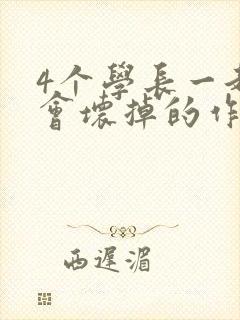 4个學長一
會壞掉的作
西遲湄